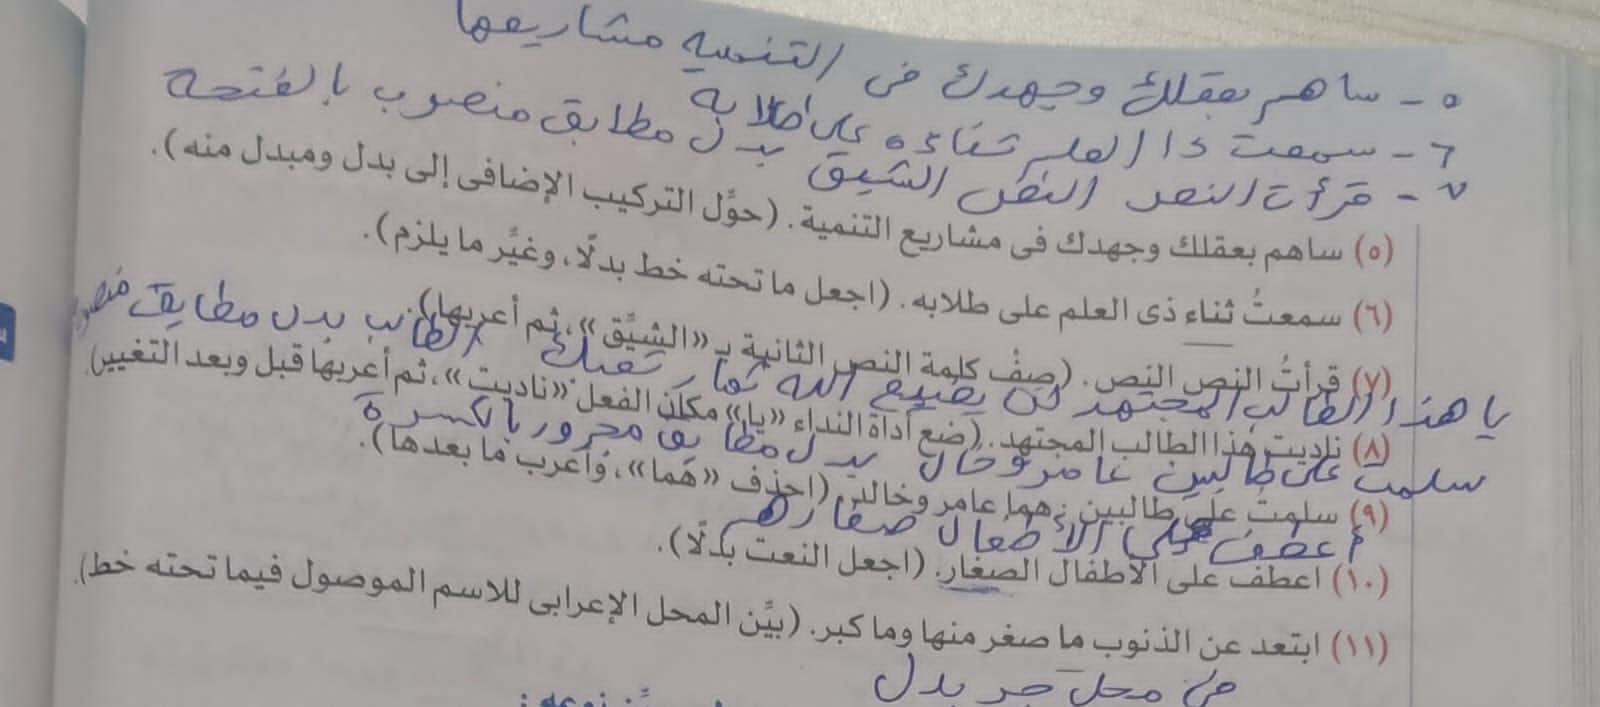 ٥ - ساهم بعقلك وجهدك فى التنميه مشاريعها
٦ - سمعت ذا العلم ثناءه على طلابه
٧ - قرأت النص النص الشيق بدل مطابق منصوب بالفتحة
(٥) ساهم بعقلك وجهدك فى مشاريع التنمية. (حوِّل التركيب الإضافى إلى بدل ومبدل منه).
(٦) سمعتُ ثناء ذى العلم على طلابه. (اجعل ما تحته خط بدلًا، وغيِّر ما يلزم).
(٧) قرأتُ النص النص. (صِفْ كلمة النص الثانية بـ «الشيِّق»، ثم أعربها).
يا هذا الطالب المجتهد لن يضيع الله تعبك الطالب بدل مطابق
(٨) ناديت هذا الطالب المجتهد. (ضع أداة النداء «يا» مكان الفعل «ناديت»، ثم أعربها قبل وبعد التغيير).
سلمت على طالبين عامر وخالد بدل مطابق مجرور بالكسرة
(٩) سلمت على طالبين: هما عامر وخالد. (احذف «هما»، وأعرب ما بعدها).
أعطف على الأطفال صغارهم
(١٠) اعطف على الأطفال الصغار. (اجعل النعت بدلًا).
(١١) ابتعد عن الذنوب ما صغر منها وما كبر. (بيِّن المحل الإعرابى للاسم الموصول فيما تحته خط).
فى محل جر بدل